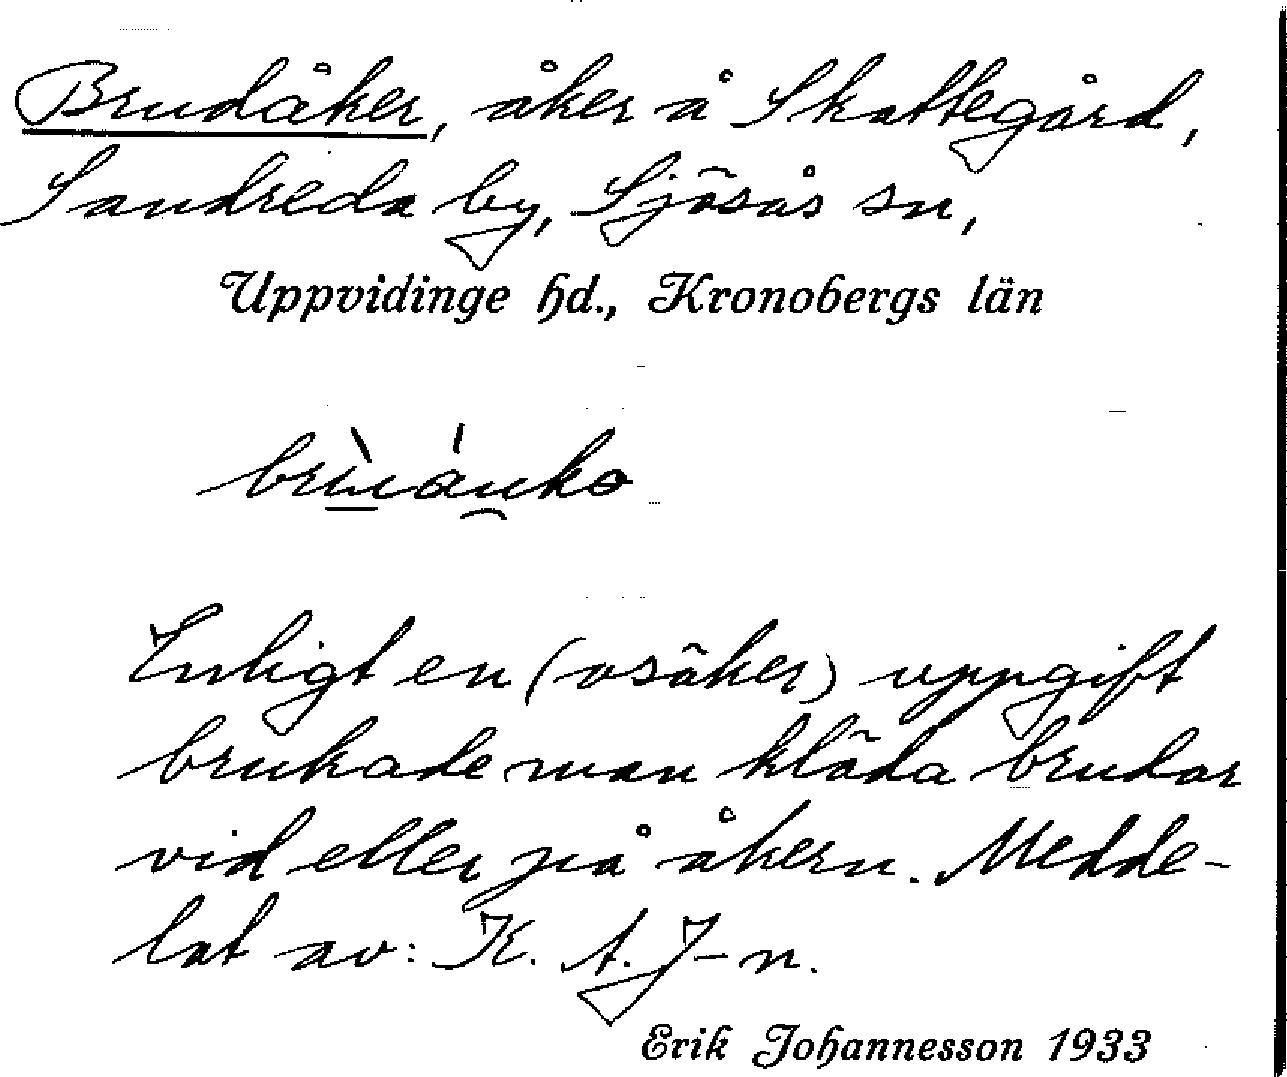 Brudåker, åker å Skattegård,
Sandreda by, Sjösås sn,
Uppvidinge hd., Kronobergs län
Enligt en (osäker) uppgift
brukade man kläda brudar
vid eller på åkern. Medde-
lat av: K. A. J-n.
Erik Johannesson 1933